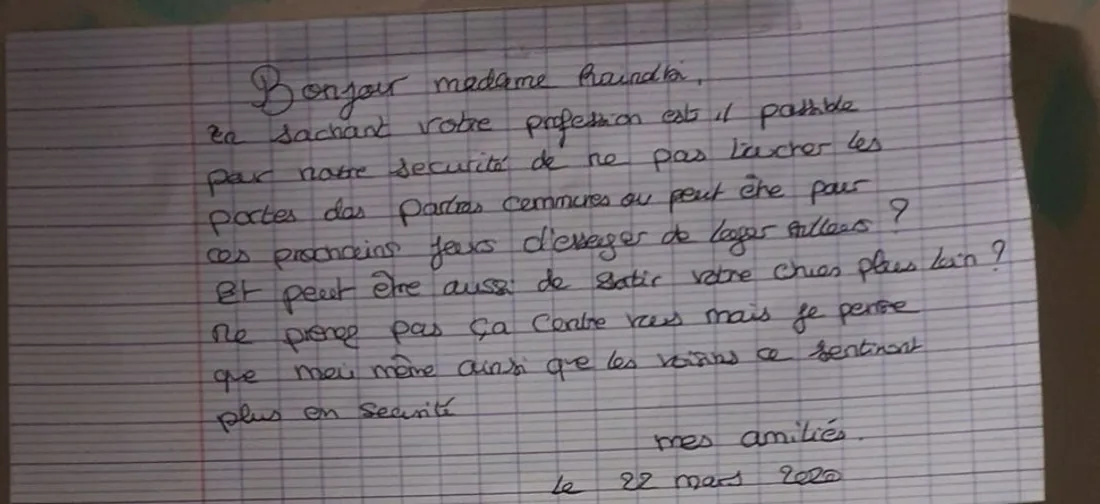 Bonjour madame
en sachant votre profession est il possible
par notre securité de ne pas toucher les
portes das parties commcnes ou peut ête pour
ces procheins jours d'esseyer de loger ailleurs ?
Et peut être aussi de sortir votre chien plus loin ?
ne prenez pas ça contre vous mais je pense
que moi même ainsi que les voisins ce sentiront
plus en securité
mes amitiés.
le 22 mars 2020